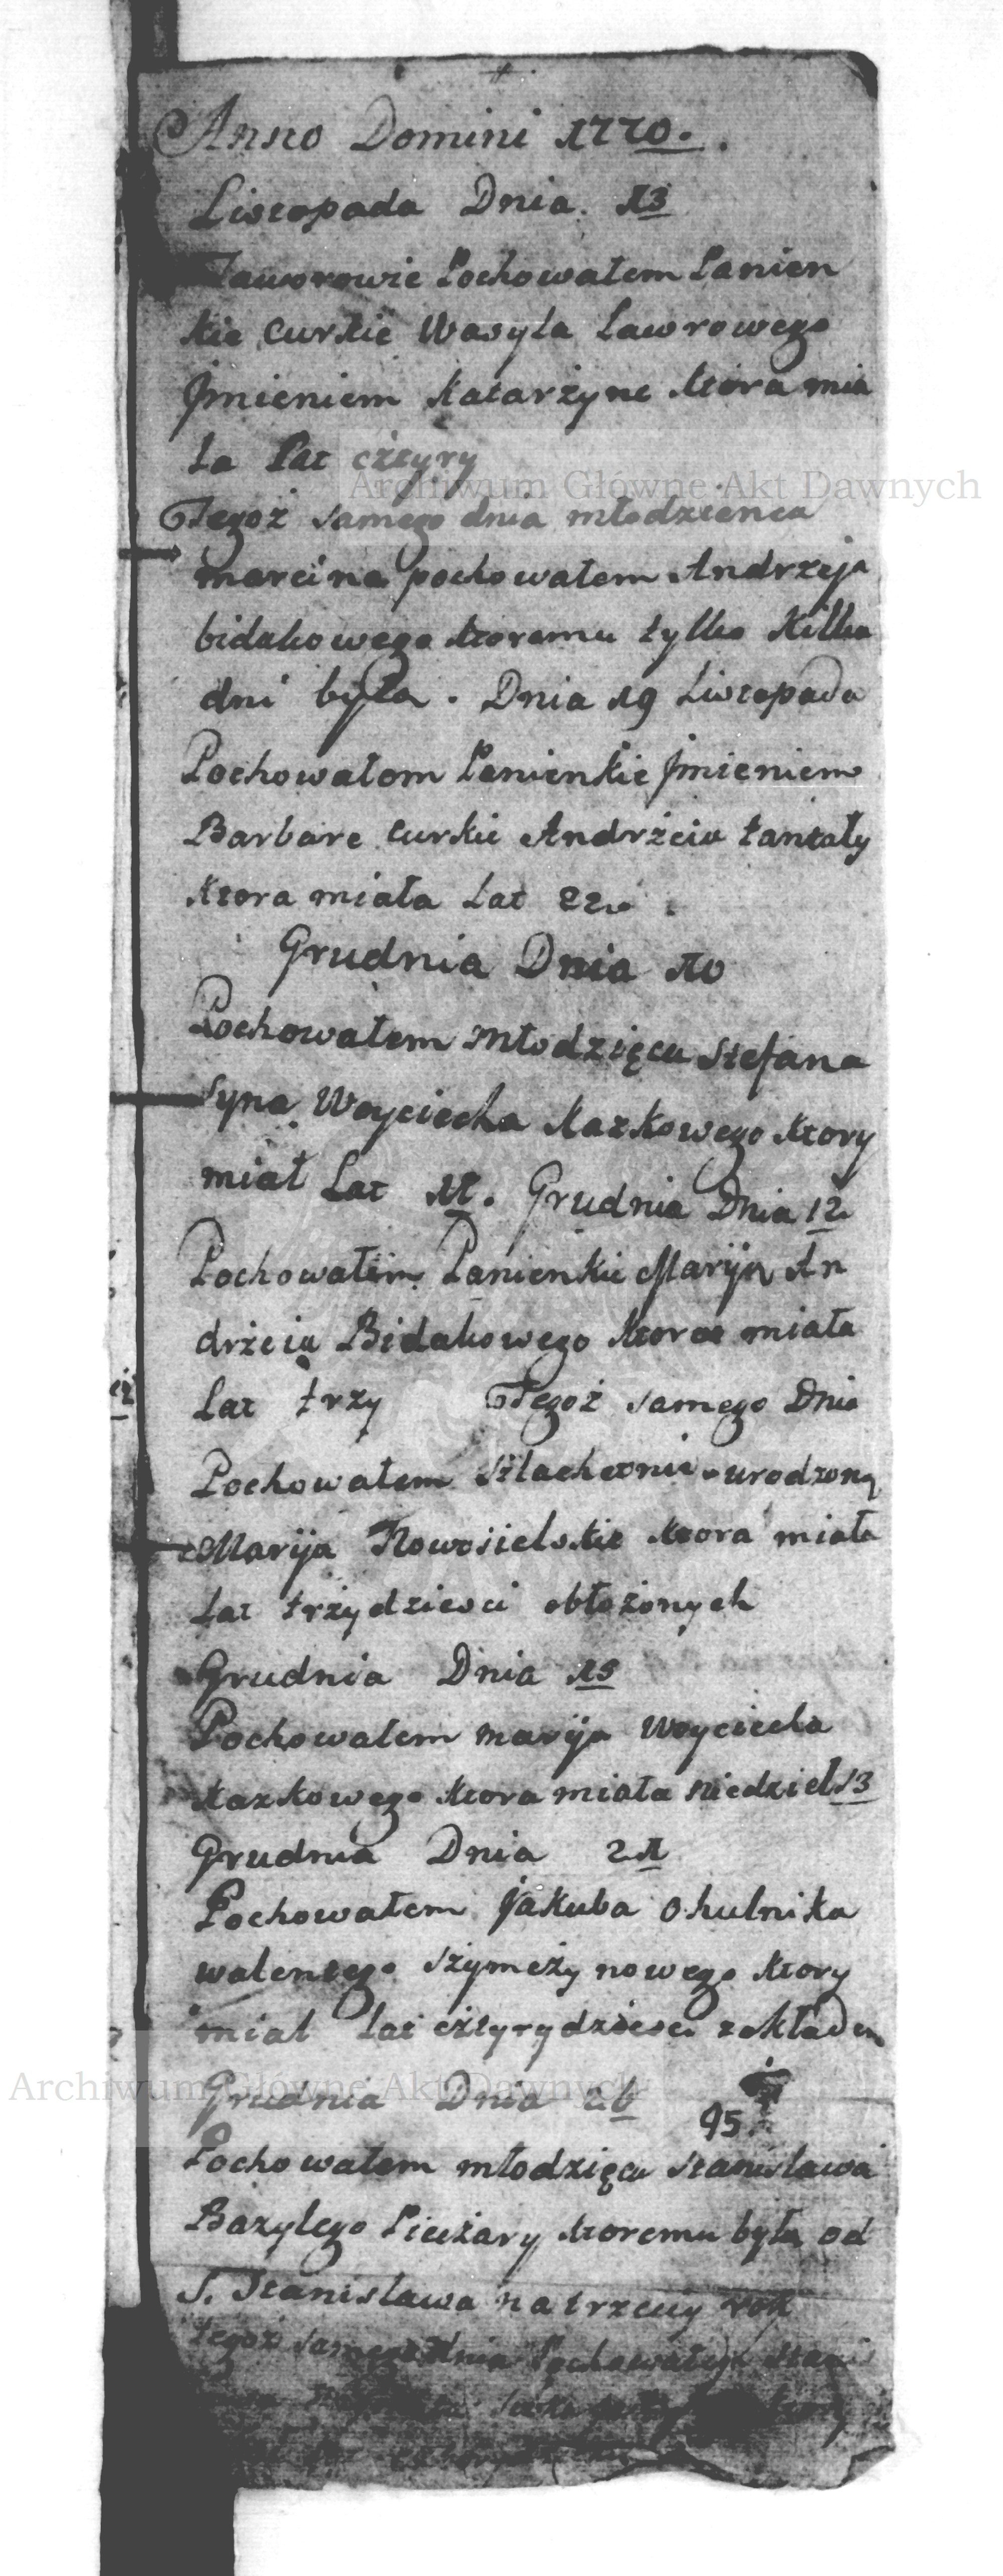 Anno Domini 1770.
Listopada Dnia 13
Jaworowie Pochowałem Panien
kie Curkie Wasyla Lawrowego
Jmieniem Katarżyne ktora mia
ła Lat cżtyry
Archiwum Główne Akt Dawnych
Tegoż samego dnia młodzienca
marcina pochowałem Andrzeja
bidakowego ktoremu tylko Kilka
dni było. Dnia 19 Listopada
Pochowałom Panienkie Jmieniem
Barbare curkie Andrżeia
ktora miała Lat 22
Grudnia Dnia 10
Pochowałem Młodzięca Stefana
syna Woyciecha Kazkowego ktory
miał Lat 11. Grudnia Dnia 12
Pochowałem Panienkie Maryja An
drżeia Bidakowego ktora miała
Lat trzy Tegoż samego Dnia
Pochowałem Szlachetnie urodzoną
Marija Nowosielskie ktora miała
Lat trżydziesci obłożonych
Grudnia Dnia 15
Pochowałem marija Woyciecha
Kazkowego ktora miała niedziel 13
Grudnia Dnia 21
Pochowałem Jakuba okulnika
walentego ktory
miał Lat cżtyrydziesci zokładem
Archiwum Główne Akt Dawnych
Grudnia Dnia 26
95
Pochowałem młodzięca Stanisława
Bazylego ktoremu było od
S. Stanisława na trzeciy rok
tegoż samego dnia Pochowałem